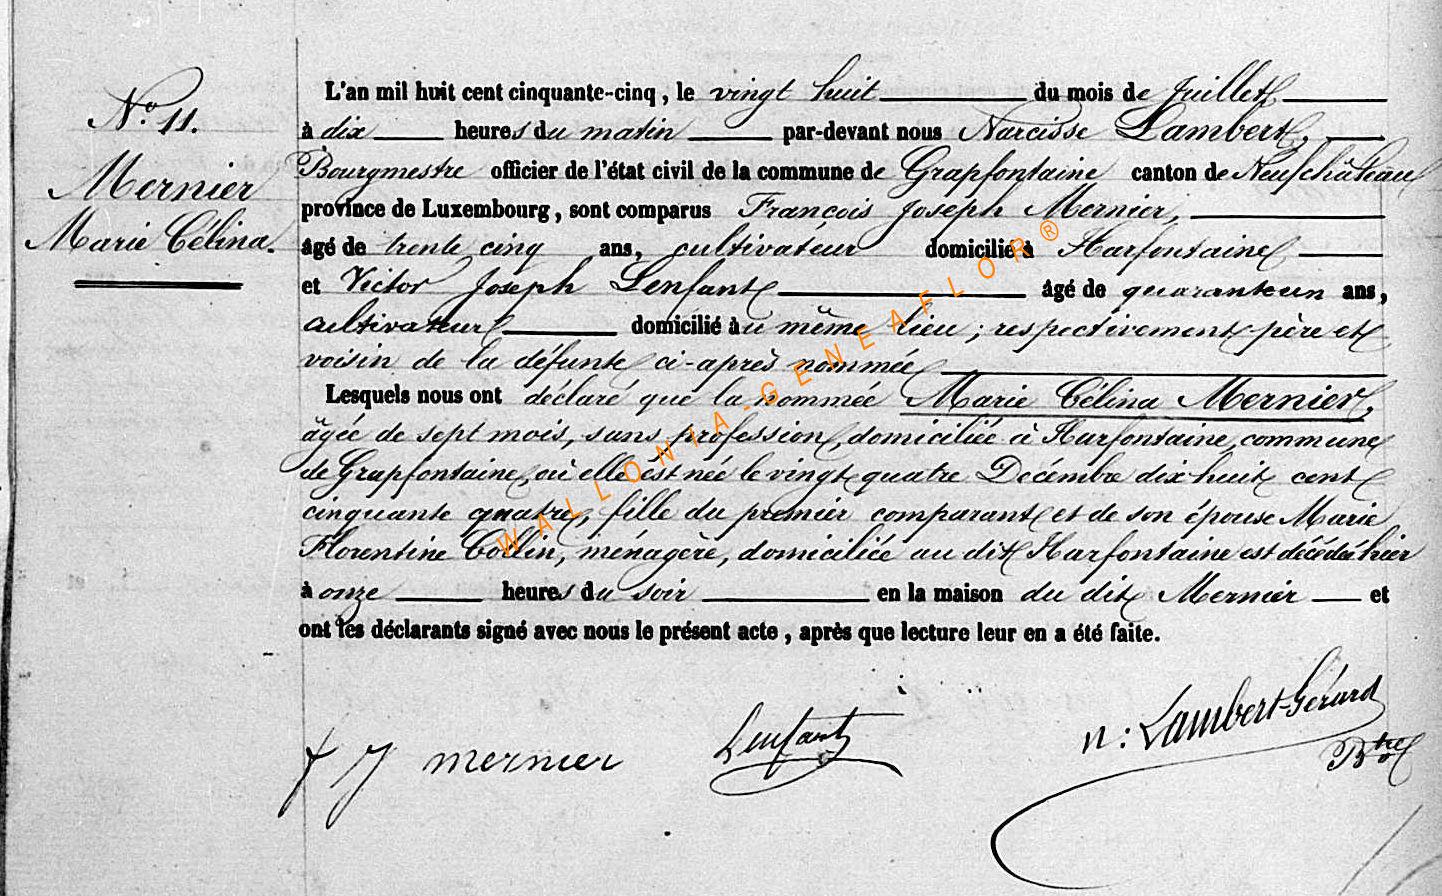 N.o 11.
Mernier
Marie Célina.
L'an mil huit cent cinquante-cinq, le vingt huit du mois de Juillet
à dix heures du matin par-devant nous Narcisse Lambert,
Bourgmestre officier de l'état civil de la commune de Grapfontaine canton de Neufchâteau
province de Luxembourg, sont comparus François Joseph Mernier,
âgé de trente cinq ans, cultivateur domicilié à Harfontaine
et Victor Joseph Lenfant âgé de quarante un ans,
cultivateur domicilié au même lieu ; respectivement père et
voisin de la défunte ci-après nommée
Lesquels nous ont déclaré que la nommée Marie Célina Mernier,
âgée de sept mois, sans profession, domiciliée à Harfontaine, commune
de Grapfontaine, où elle est née le vingt quatre Décembre dix huit cent
cinquante quatre, fille du premier comparant et de son épouse Marie
Florentine Collin, ménagère, domiciliée au dit Harfontaine est décédée hier
à onze heures du soir en la maison du dit Mernier et
ont les déclarants signé avec nous le présent acte, après que lecture leur en a été faite.
f J mernier Lenfant n: Lambert-Gérard
Btre
WALLONIA-GENEAFLOR®